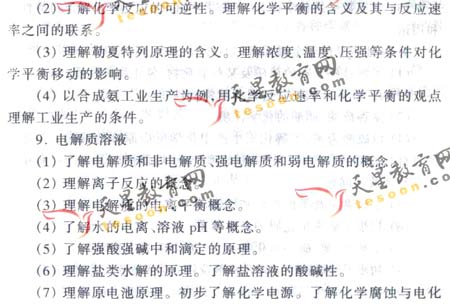 (2) 了解化学反应的可逆性。理解化学平衡的含义及其与反应速
率之间的联系。
(3) 理解勒夏特列原理的含义。理解浓度、温度、压强等条件对化
学平衡移动的影响。
(4) 以合成氨工业生产为例,用化学反应速率和化学平衡的观点
理解工业生产的条件。
9. 电解质溶液
(1) 了解电解质和非电解质、强电解质和弱电解质的概念。
(2) 理解离子反应的概念。
(3) 理解电解质的电离平衡概念。
(4) 了解水的电离、溶液 pH 等概念。
(5) 了解强酸强碱中和滴定的原理。
(6) 理解盐类水解的原理。了解盐溶液的酸碱性。
(7) 理解原电池原理。初步了解化学电源。了解化学腐蚀与电化
天星教育网
tesoon.com
天星教育网
tesoon.com
天星教育网
tesoon.com